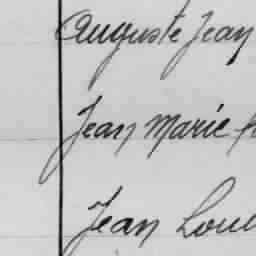 Auguste Jean
Jean Marie
Jean